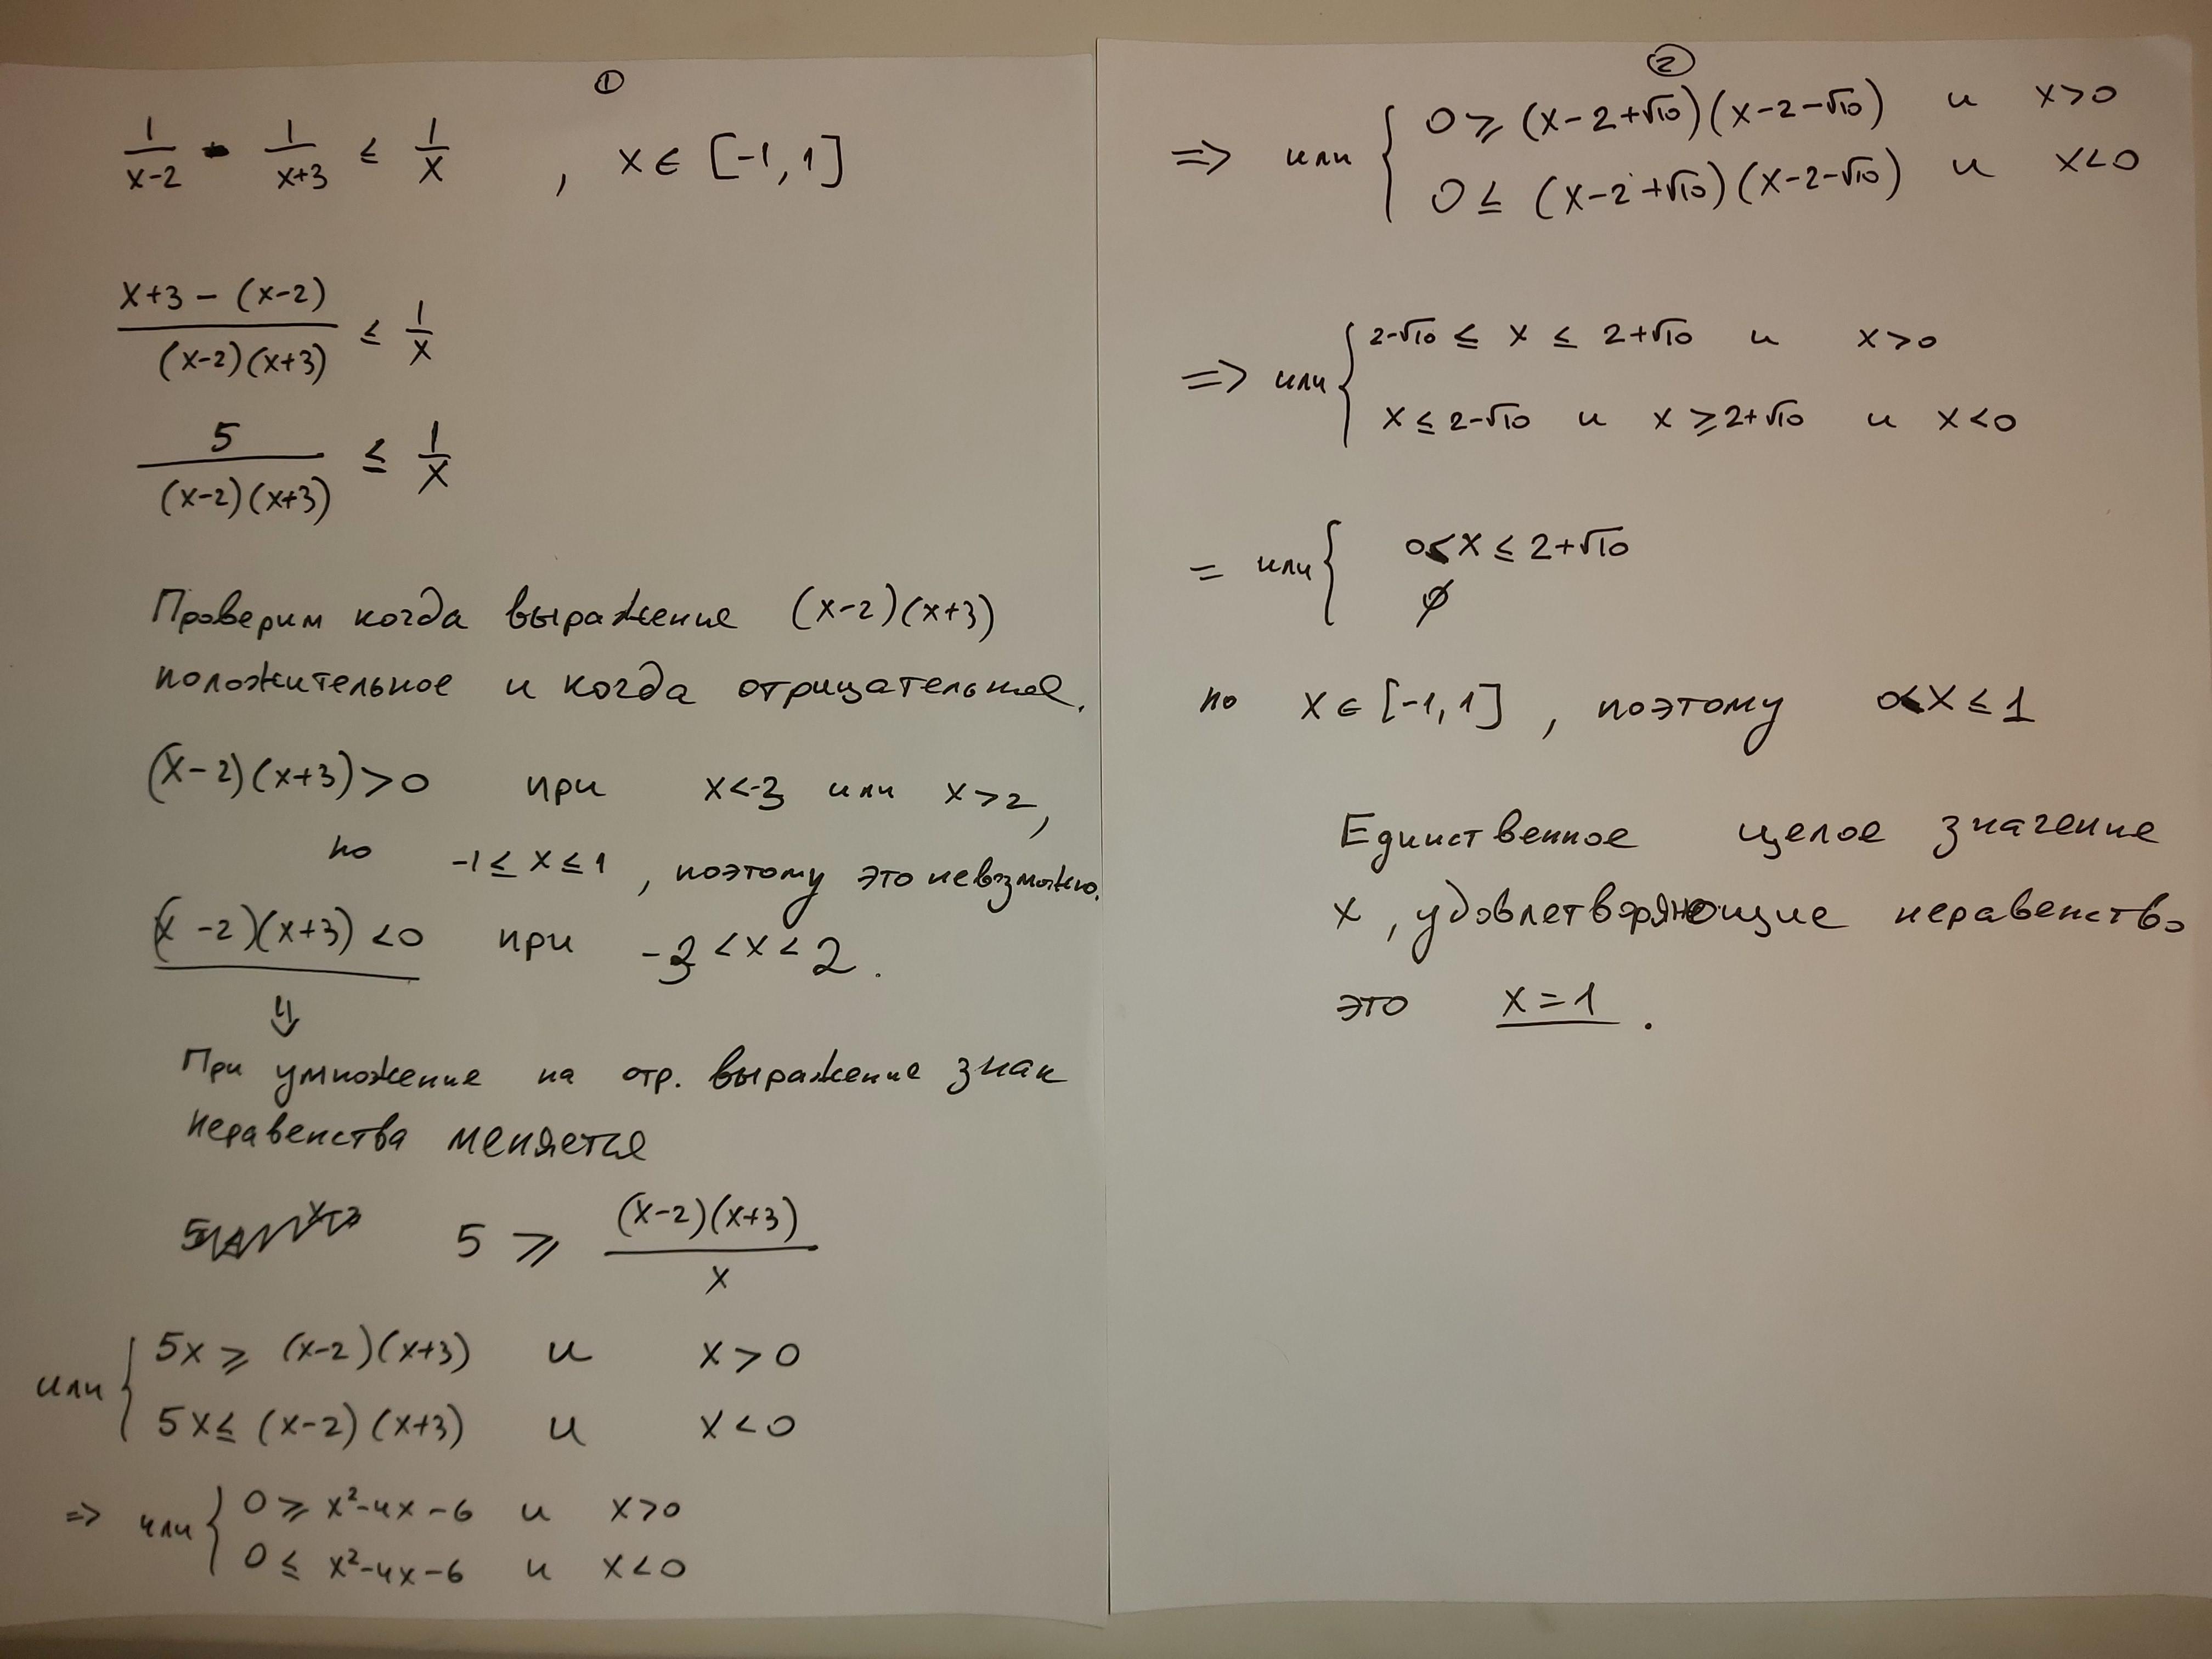 ①
1/(x-2) - 1/(x+3) ≤ 1/x , x ∈ [-1, 1]
(x+3 - (x-2))/((x-2)(x+3)) ≤ 1/x
5/((x-2)(x+3)) ≤ 1/x
Проверим когда выражение (x-2)(x+3)
положительное и когда отрицательное.
(x-2)(x+3) > 0 при x < -3 или x > 2,
но -1 ≤ x ≤ 1, поэтому это невозможно.
(x-2)(x+3) < 0 при -3 < x < 2.
⇓
При умножение на отр. выражение знак
неравенства меняется
5 ≥ (x-2)(x+3)/x
или { 5x ≥ (x-2)(x+3) и x > 0
5x ≤ (x-2)(x+3) и x < 0
=> или { 0 ≥ x²-4x-6 и x>0
0 ≤ x²-4x-6 и x<0
②
=> или { 0 ≥ (x-2+√10)(x-2-√10) и x>0
0 ≤ (x-2+√10)(x-2-√10) и x<0
=> или { 2-√10 ≤ x ≤ 2+√10 и x>0
x ≤ 2-√10 и x ≥ 2+√10 и x<0
= или { 0 < x ≤ 2+√10
∅
но x ∈ [-1, 1], поэтому 0 < x ≤ 1
Единственное целое значение
x, удовлетворяющие неравенство
это x = 1.